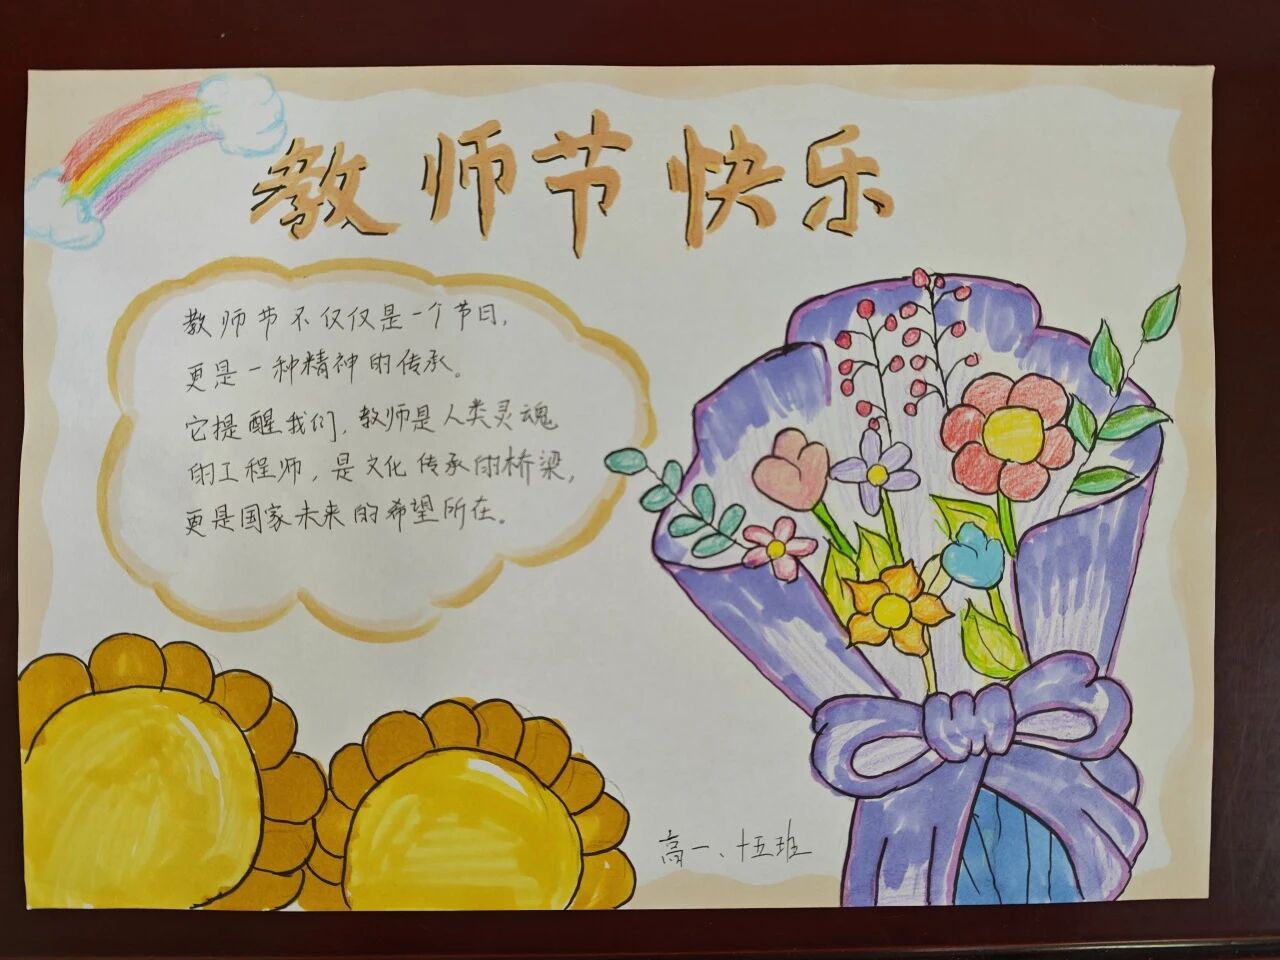 教师节快乐
教师节不仅仅是一个节日，
更是一种精神的传承。
它提醒我们，教师是人类灵魂
的工程师，是文化传承的桥梁，
更是国家未来的希望所在。
高一、十五班